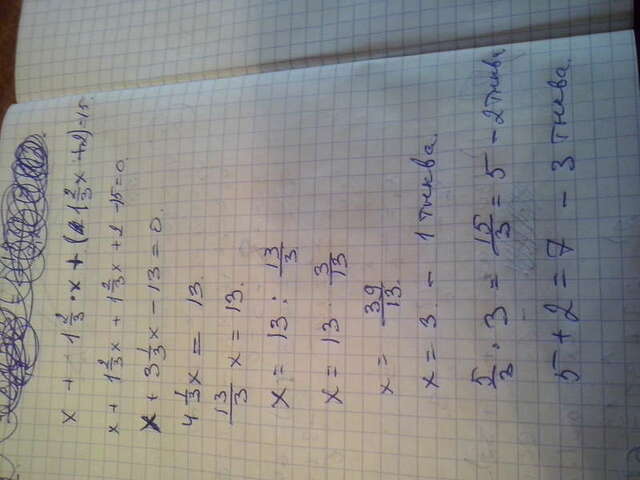 x + 1 2/3 · x + (1 2/3 x + 2) = 15.
x + 1 2/3 x + 1 2/3 x + 2 - 15 = 0.
x + 3 1/3 x - 13 = 0.
4 1/3 x = 13.
13/3 x = 13.
x = 13 : 13/3
x = 13 · 3/13
x = 39/13.
x = 3 - 1 тыква.
5/3 · 3 = 15/3 = 5 - 2 тыква
5 + 2 = 7 - 3 тыква.